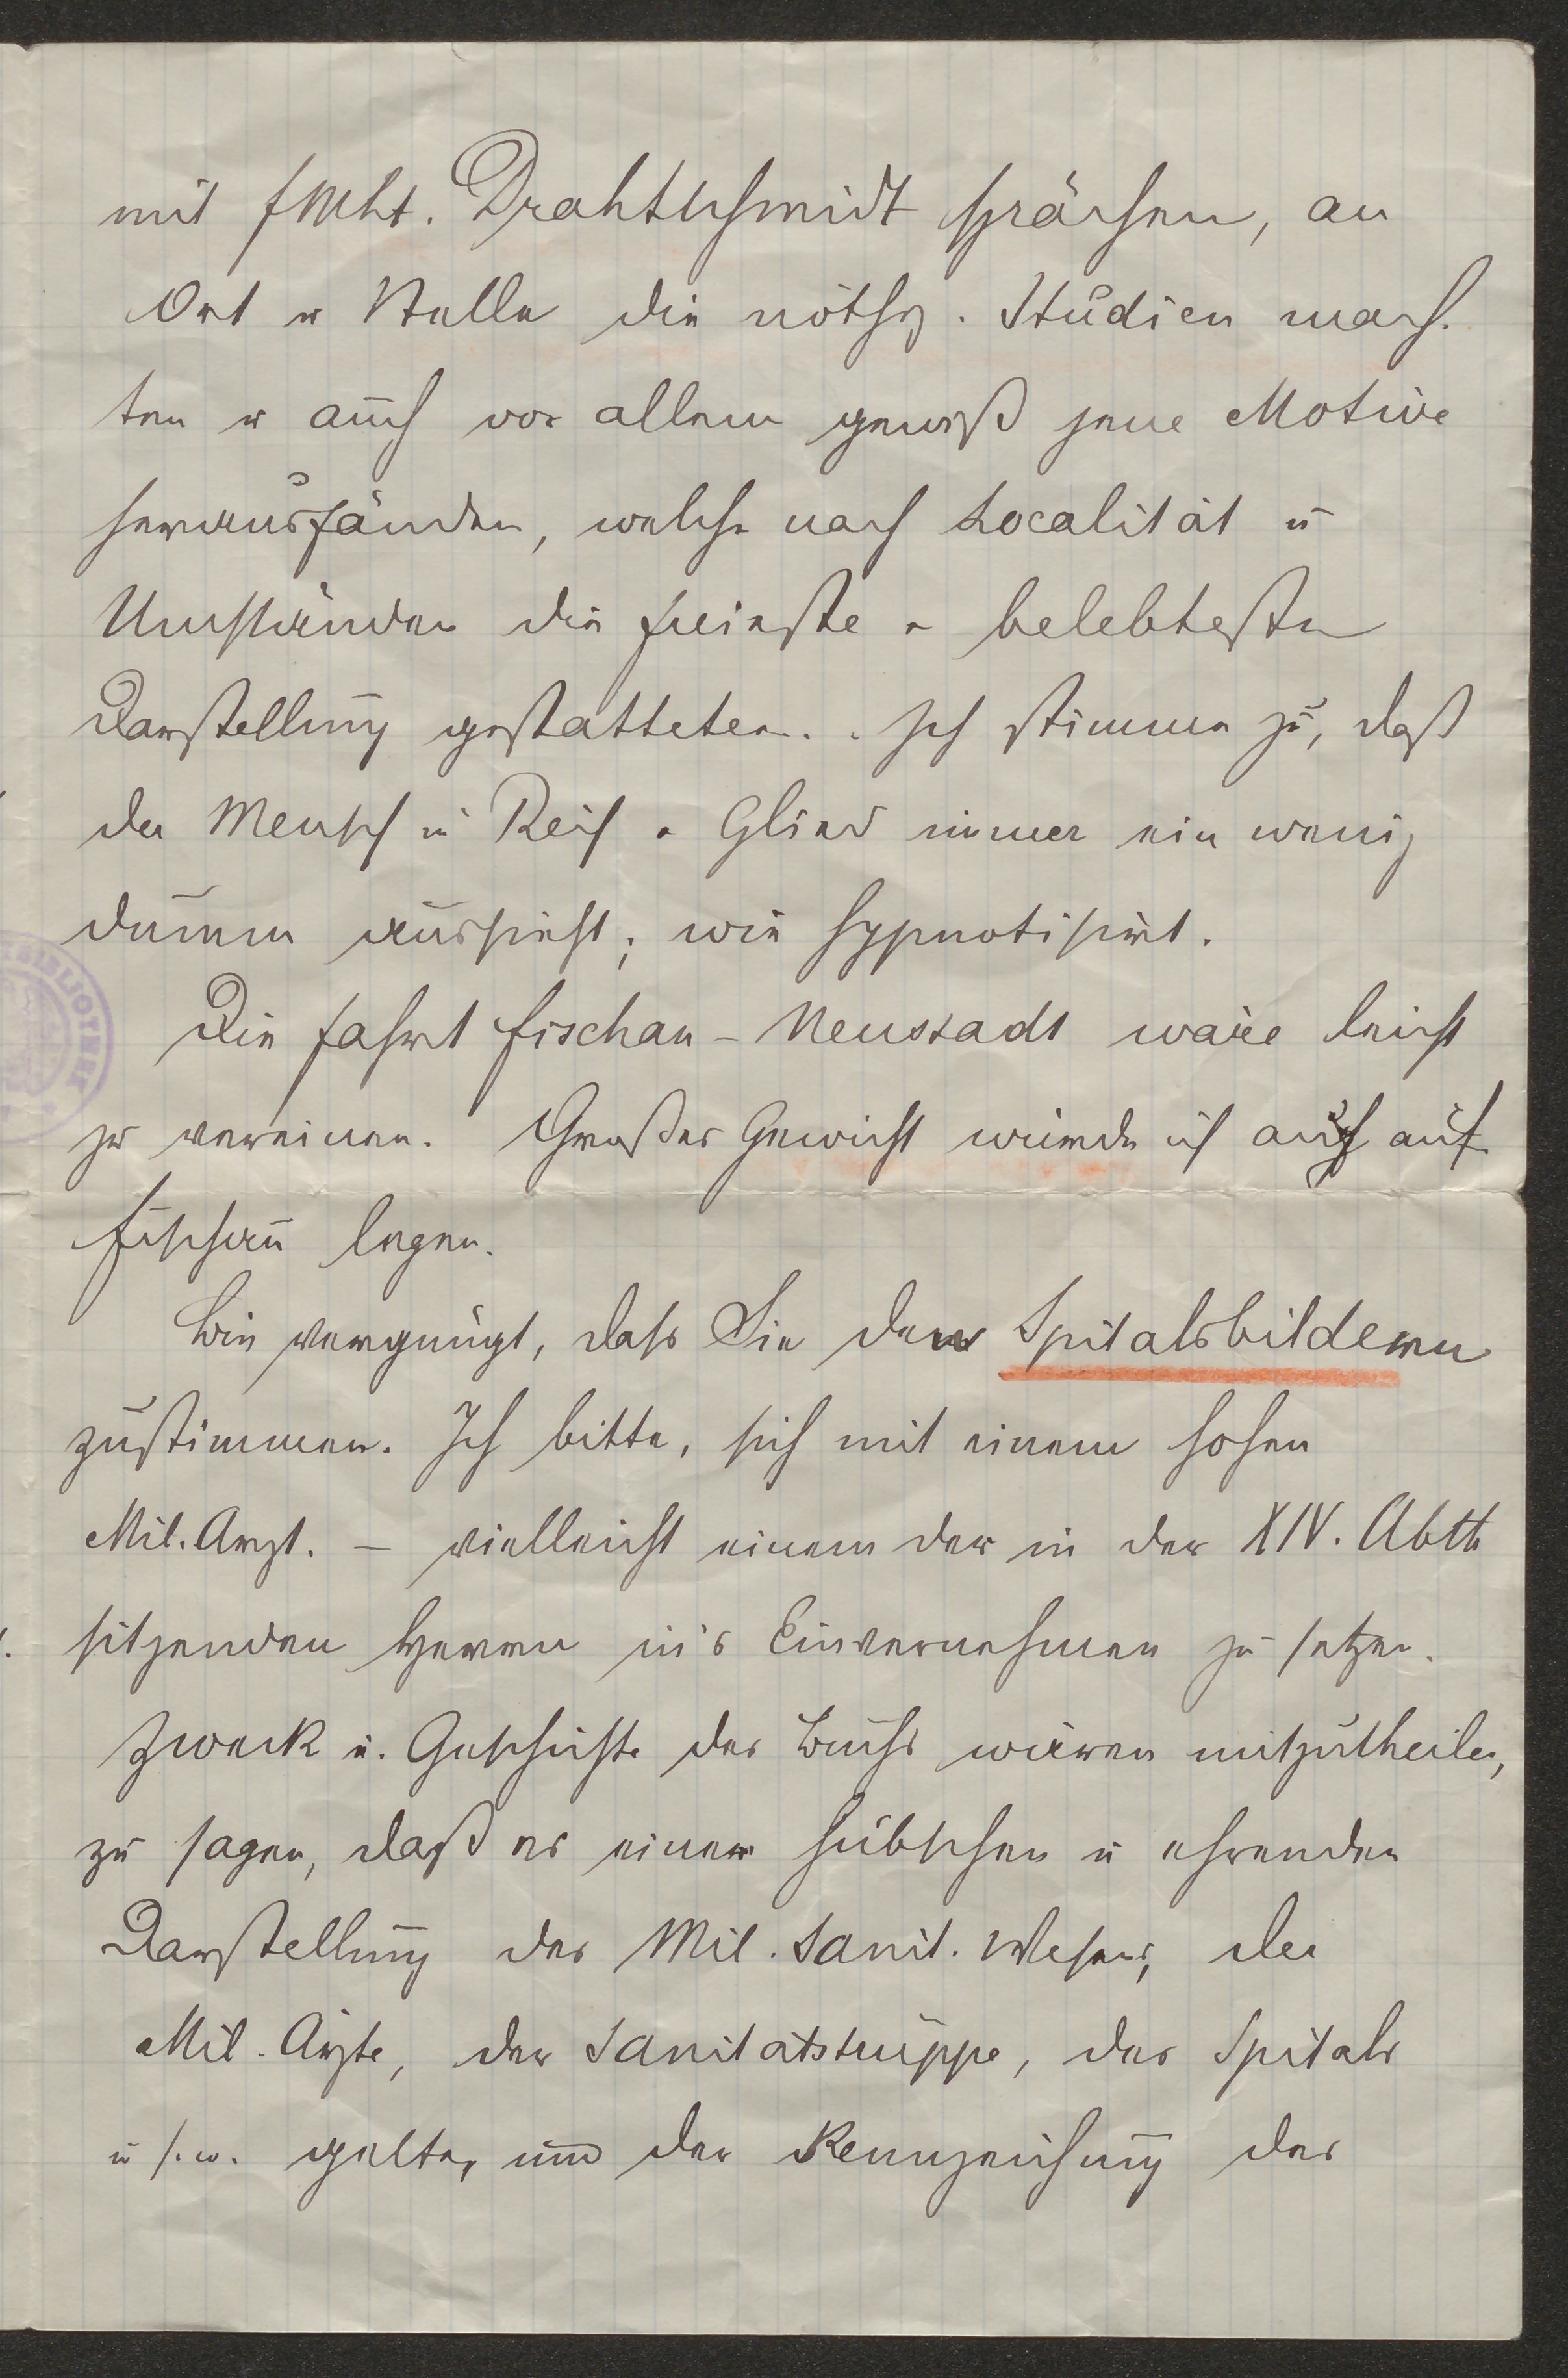 mit FMLt. Drahtschmidt sprächen, an
Ort u Stelle die nöthg. Studien mach-
ten u auch vor allem gewiß jene Motive
herausfänden, welche nach Localität u
Umständen die freieste u belebteste
Darstellung gestatteten. Ich stimme zu, daß
der Mensch in Reih u Glied immer ein wenig
dumm aussieht; wie hypnotisirt.
Die Fahrt Fischau - Neustadt wäre leicht
zu vereinen. Großes Gewicht würde ich auch auf
Fischau legen.
Bin vergnügt, dass Sie den Spitalsbildern
zustimmen. Ich bitte, sich mit einem hohen
Mil. Arzt. - vielleicht einem der in der XIV. Abth
sitzenden Herren in's Einvernehmen zu setzen.
Zweck u. Geschichte des Buchs wären mitzutheilen,
zu sagen, daß es einer hübschen u ehrenden
Darstellung des Mil. Sanit. Wesens, der
Mil. Ärzte, der Sanitätstruppe, des Spitals
u s. w. gelte, und der Kennzeichnung des
BIBLIOTHEK